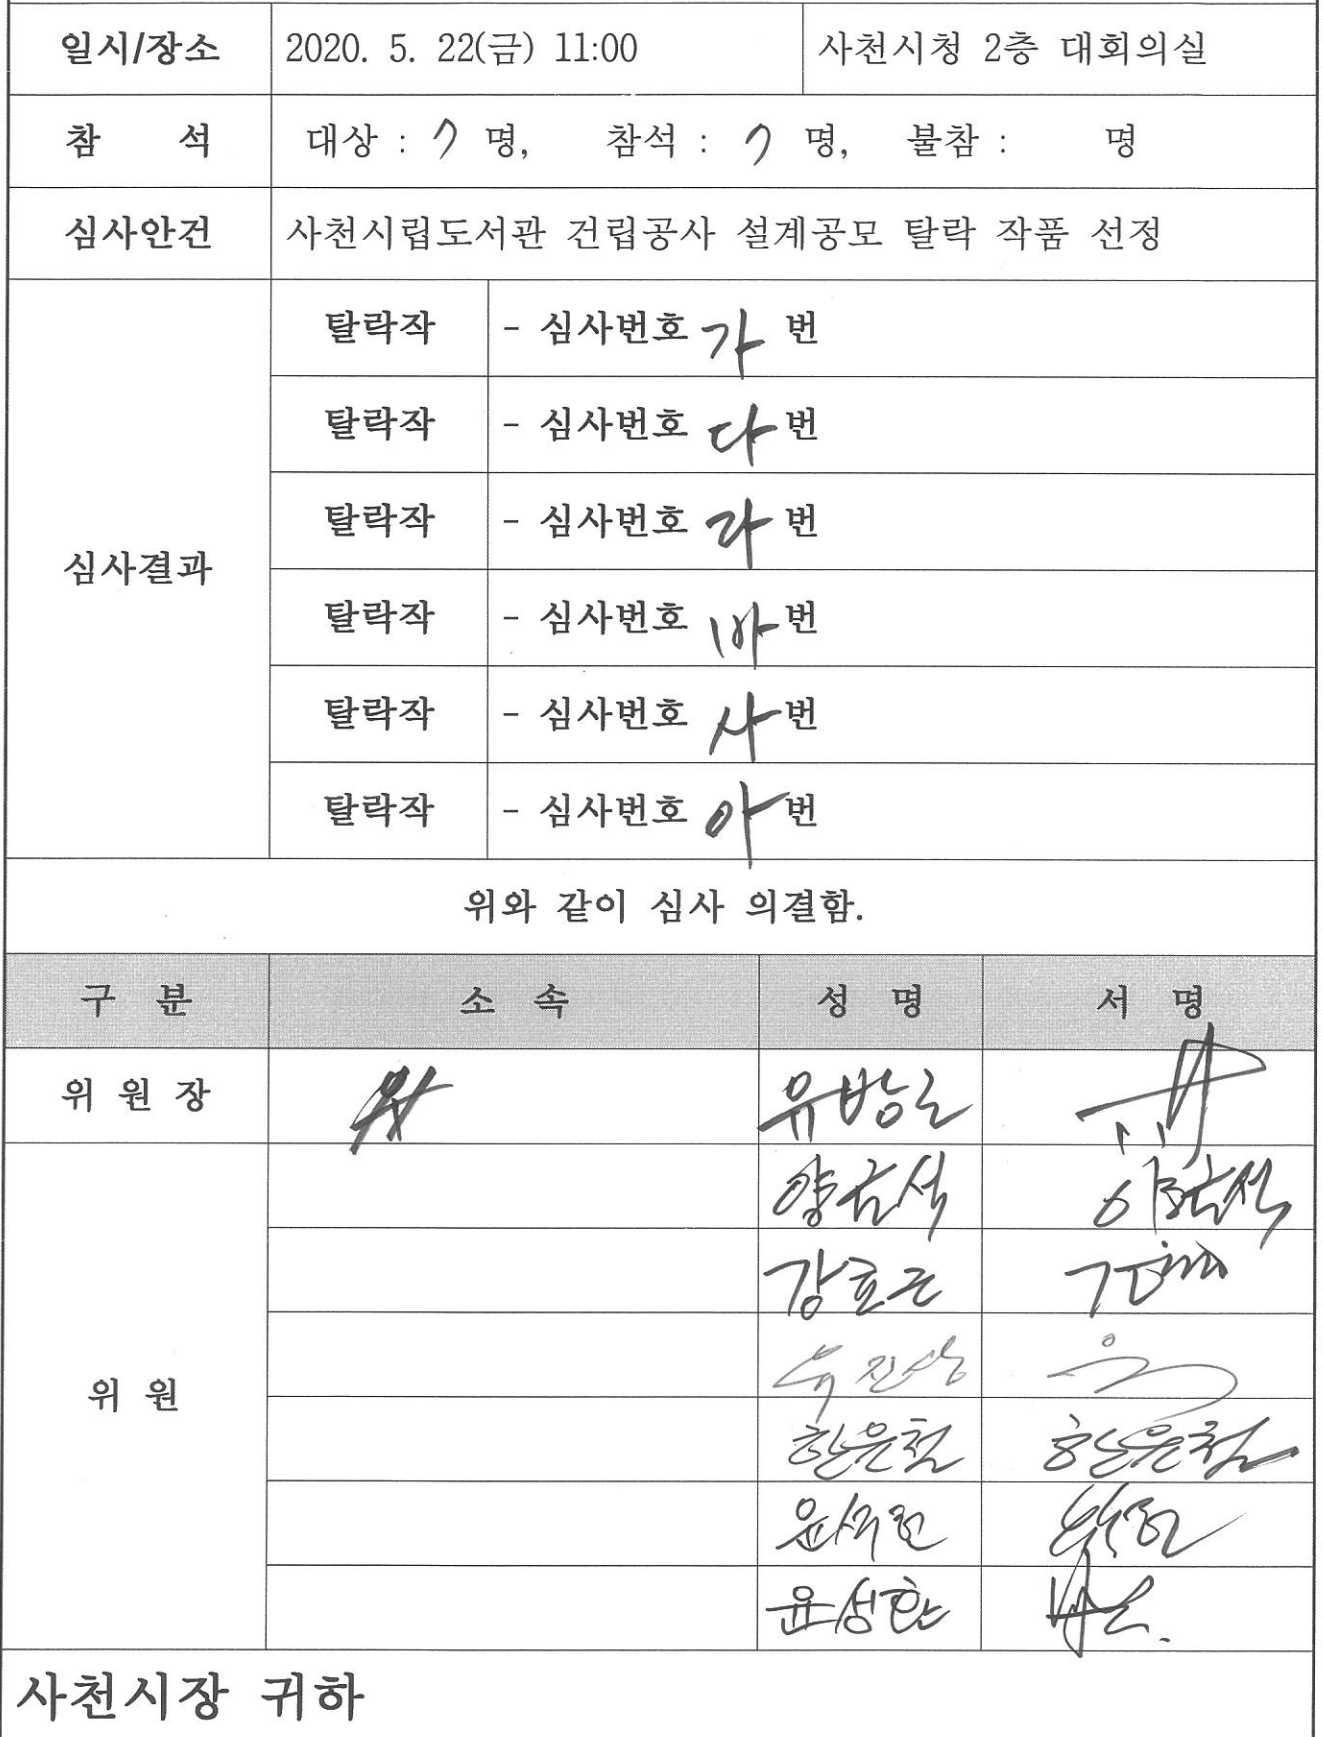 일시/장소 2020. 5. 22(금) 11:00 사천시청 2층 대회의실
참 석 대상 : 7 명, 참석 : 7 명, 불참 : 명
심사안건 사천시립도서관 건립공사 설계공모 탈락 작품 선정
심사결과
탈락작 - 심사번호 가 번
탈락작 - 심사번호 다 번
탈락작 - 심사번호 라 번
탈락작 - 심사번호 바 번
탈락작 - 심사번호 사 번
탈락작 - 심사번호 아 번
위와 같이 심사 의결함.
구 분 소 속 성 명 서 명
위 원 장 유방근
위 원
양금석 양금석
강효근
한은철 한은철
윤성환
사천시장 귀하